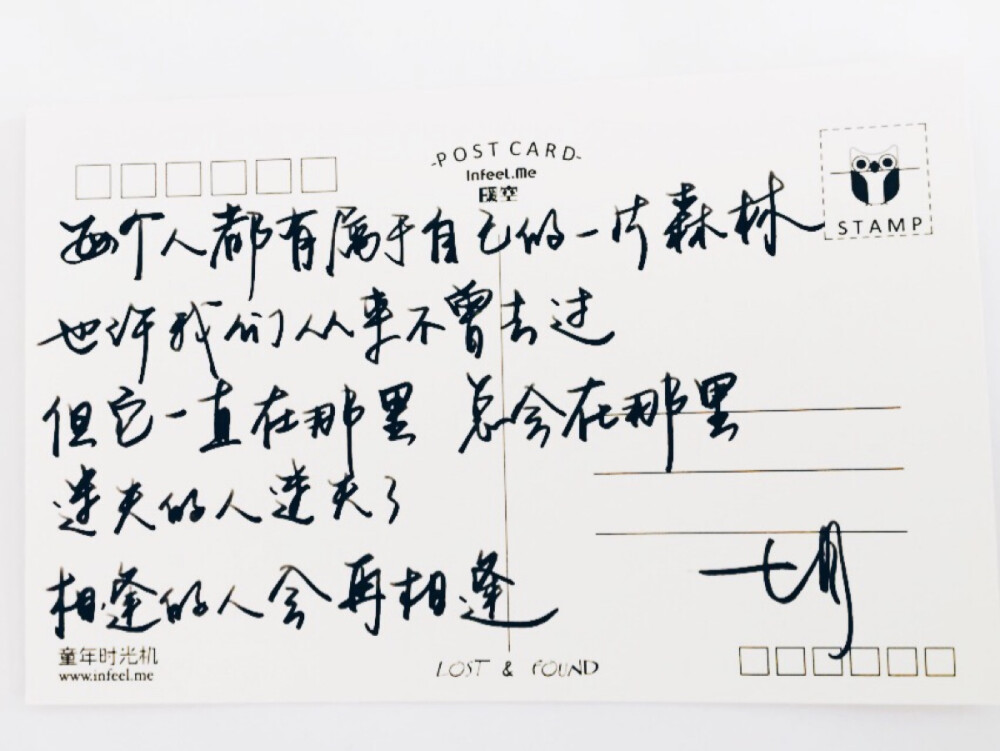 POST CARD
Infeel.Me
暖空
STAMP
每个人都有属于自己的一片森林
也许我们从来不曾去过
但它一直在那里 总会在那里
迷失的人迷失了
相逢的人会再相逢
七月
童年时光机
www.infeel.me
LOST & FOUND